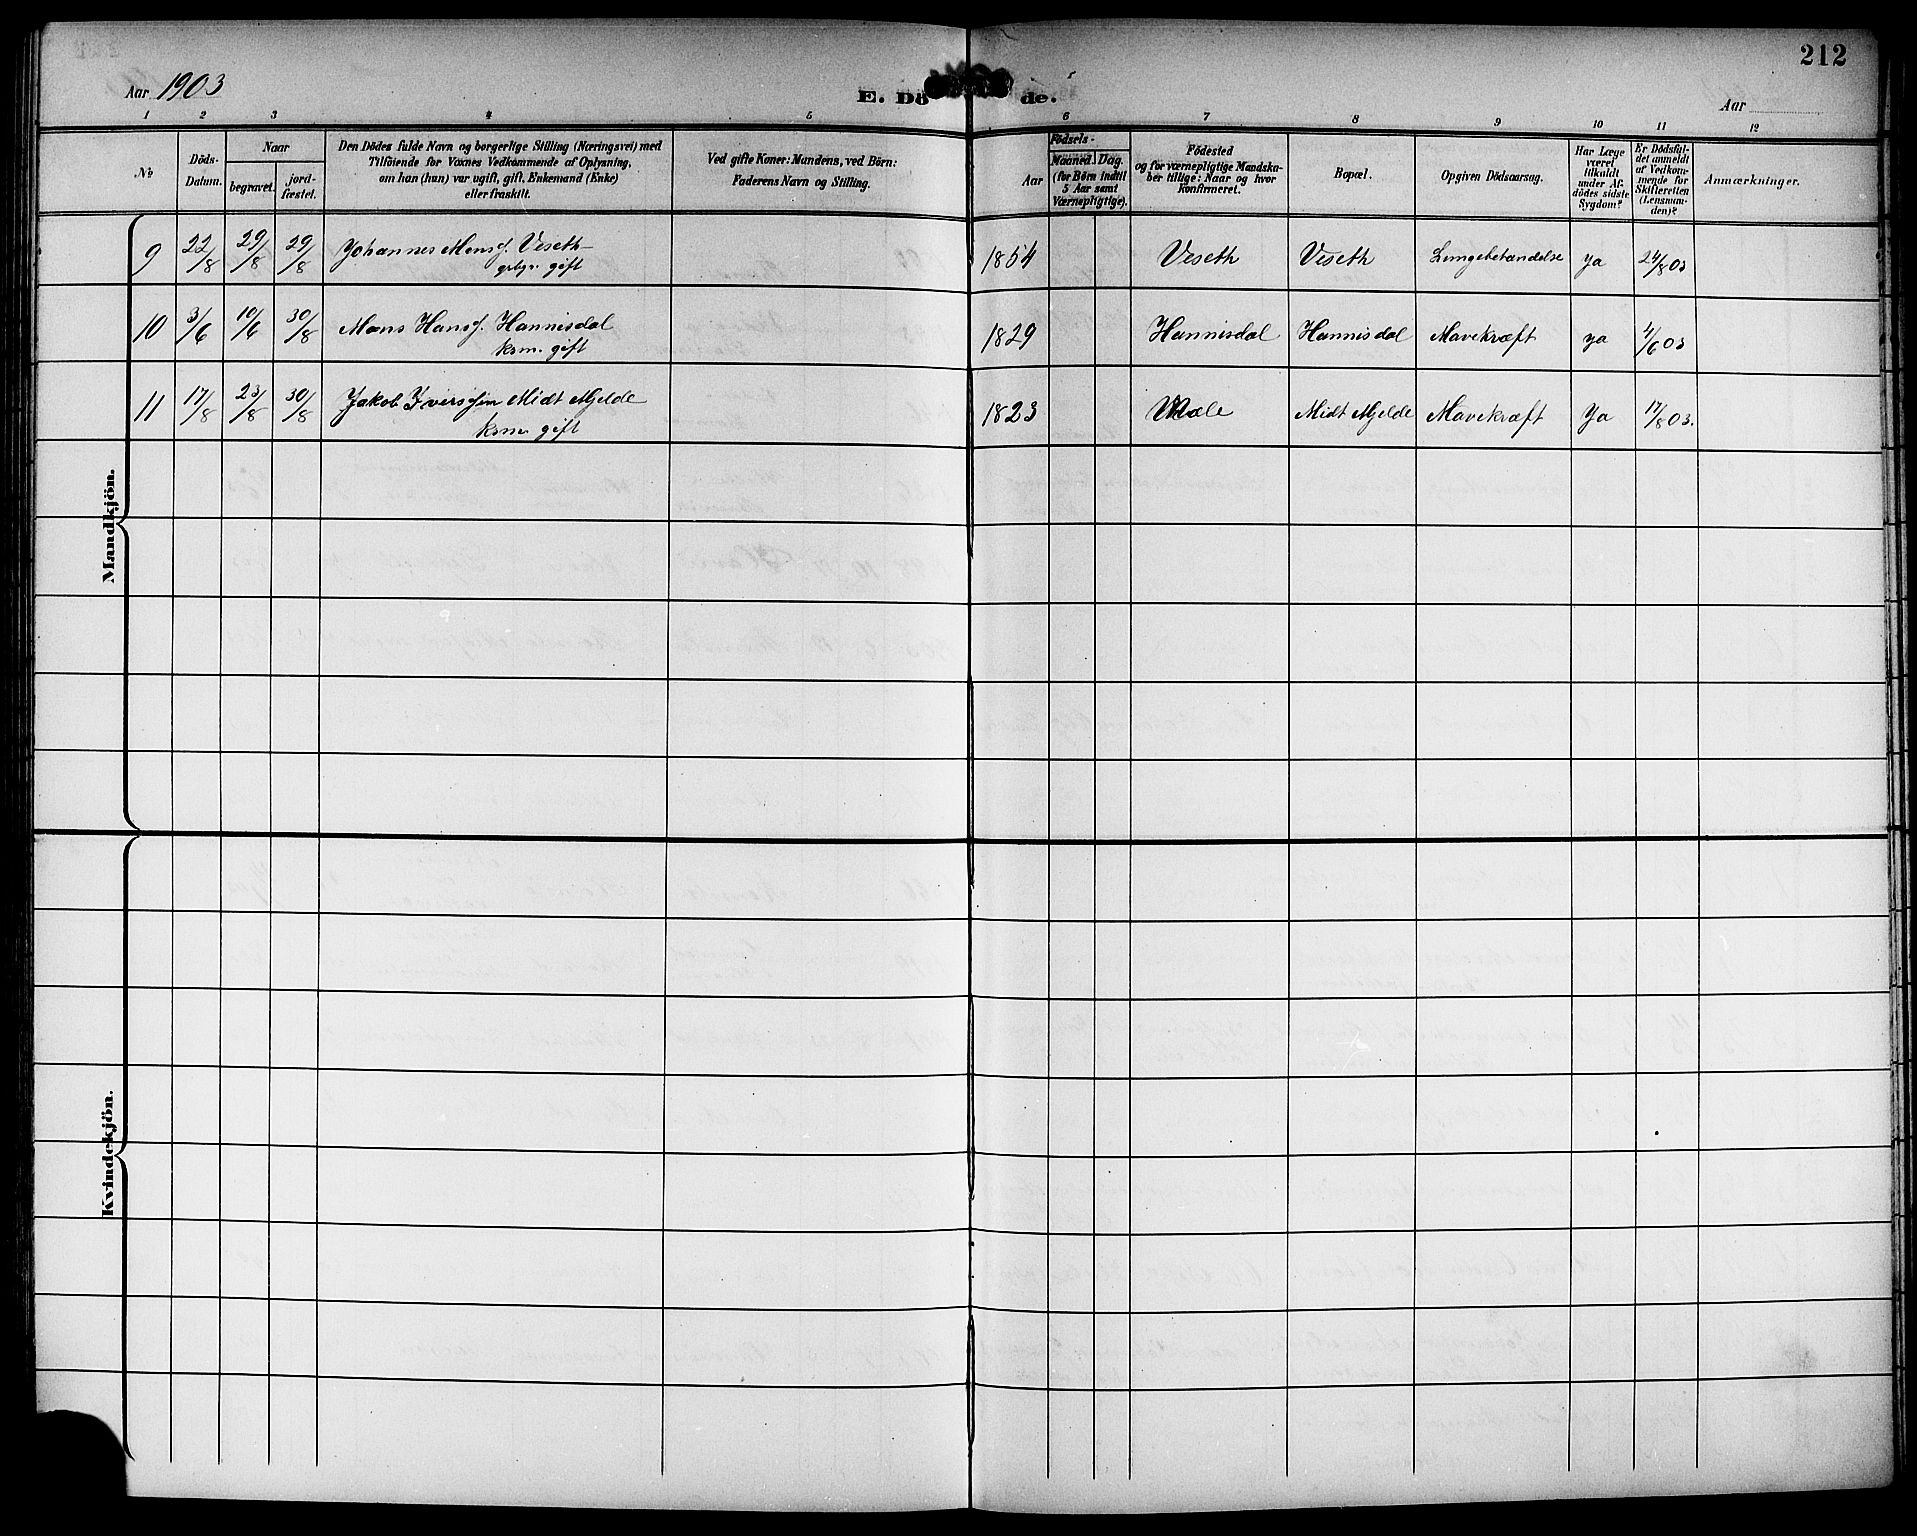 212
Aar 1903
E. Dö de.
Aar
1 2 3 4 5 6 7 8 9 10 11 12
No
Döds-
Datum.
Naar
begravet.
jord-
fæstet.
Den Dödes fulde Navn og borgerlige Stilling (Næringsvei) med
Tilföiende for Voxnes Vedkommende af Oplysning,
om han (hun) var ugift, gift, Enkemand (Enke)
eller fraskilt.
Ved gifte Koner: Mandens, ved Börn:
Faderens Navn og Stilling.
Födsels-
Aar
Maaned.
Dag.
(for Börn indtil
5 Aar samt
Værnepligtige).
Födested
og for værnepligtige Mandska-
ber tillige: Naar og hvor
Konfirmeret.
Bopæl.
Opgiven Dödsaarsag.
Har Læge
været
tilkaldt
under Af-
dödes sidste
Sygdom?
Er Dödsfal-
det anmeldt
af Vedkom-
mende for
Skifteretten
(Lensman-
den)?
Anmærkninger.
Mandkjön.
9 22/8 29/8 29/8 Johannes Monsf. Veseth 1854 Veseth Veseth Lungebetændelse ja 24/8 03
gift
10 3/6 10/6 30/8 Mons Hansf. Hannisdal 1829 Hannisdal Hannisdal Mavekræft ja 4/6 03
ksm. gift
11 17/8 23/8 30/8 Jakob Iversen Midt Mjelde 1823 Mæle Midt Mjelde Mavekræft Ja 17/8 03.
ksm. gift
Kvindekjön.